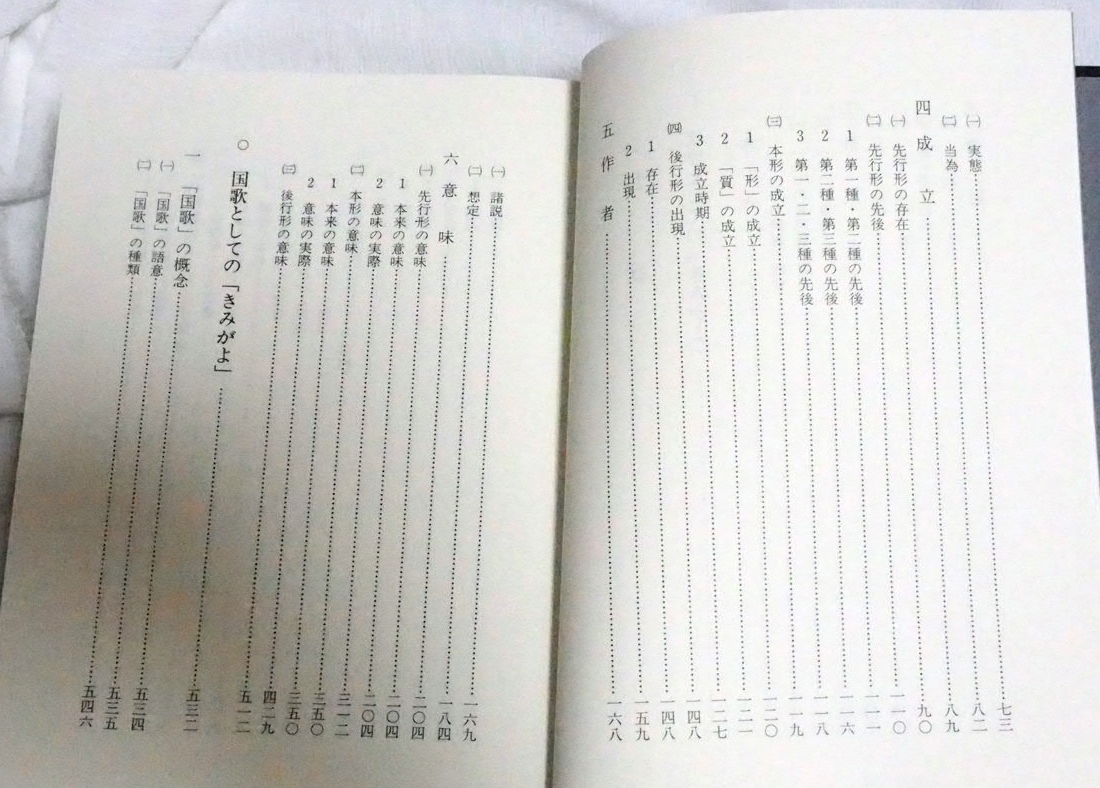 ㈠ 実態……七三
㈡ 当為……八二
四 成 立……八九
㈠ 先行形の存在……九〇
㈡ 先行形の先後……一一〇
1 第一種・第二種の先後……一一一
2 第二種・第三種の先後……一一六
3 第一・二・三種の先後……一一八
㈢ 本形の成立……一一九
1 「形」の成立……一二〇
2 「質」の成立……一二一
3 成立時期……一二七
㈣ 後行形の出現……一四八
1 存在……一四八
2 出現……一五九
五 作 者……一六八
㈠ 諸説……一六九
㈡ 想定……一八四
六 意 味……二〇四
㈠ 先行形の意味……二〇四
1 本来の意味……二〇四
2 意味の実際……三一二
㈡ 本形の意味……三五〇
1 本来の意味……三五〇
2 意味の実際……四二九
㈢ 後行形の意味……五一二
○ 国歌としての「きみがよ」……五三二
一 「国歌」の概念……五三四
㈠ 「国歌」の語意……五三五
㈡ 「国歌」の種類……五四六